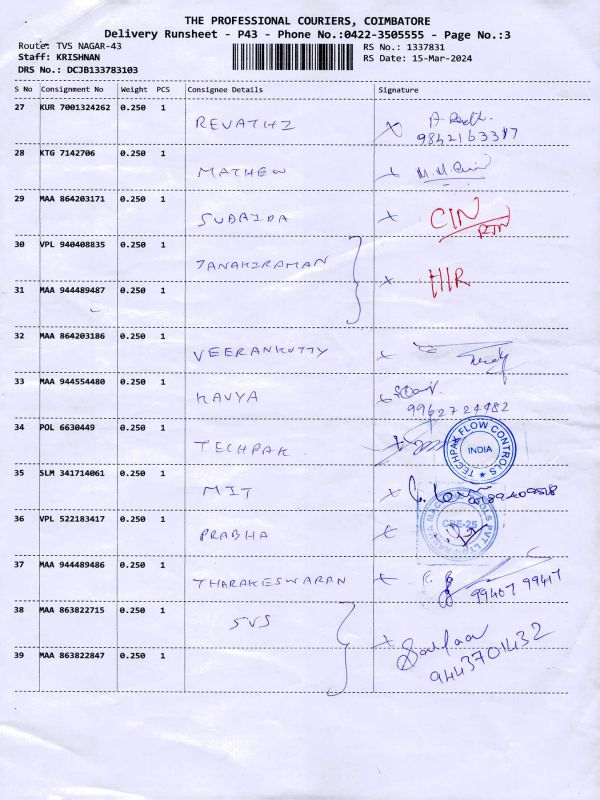 THE PROFESSIONAL COURIERS, COIMBATORE
Delivery Runsheet - P43 - Phone No.:0422-3505555 - Page No.:3
Route: TVS NAGAR-43 RS No.: 1337831
Staff: KRISHNAN RS Date: 15-Mar-2024
DRS No.: DCJB133783103
S No Consignment No Weight PCS Consignee Details Signature
27 KUR 7001324262 0.250 1
REVATHI
9842163317
28 KTG 7142706 0.250 1
MATHEW
29 MAA 864203171 0.250 1
SUBAIDA CIN
RTN
30 VPL 940408835 0.250 1
JANAKIRAMAN HIR
31 MAA 944489487 0.250 1
32 MAA 864203186 0.250 1
VEERANKUTTY
33 MAA 944554480 0.250 1
KAVYA
9962724482
34 POL 6630449 0.250 1
TECHPAK TECHPAK FLOW CONTROLS INDIA
35 SLM 341714061 0.250 1
MIT
36 VPL 522183417 0.250 1
PRABHA CBE-25
37 MAA 944489486 0.250 1
THARAKESWARAN 99407 99417
38 MAA 863822715 0.250 1
SVS
39 MAA 863822847 0.250 1
9443701432